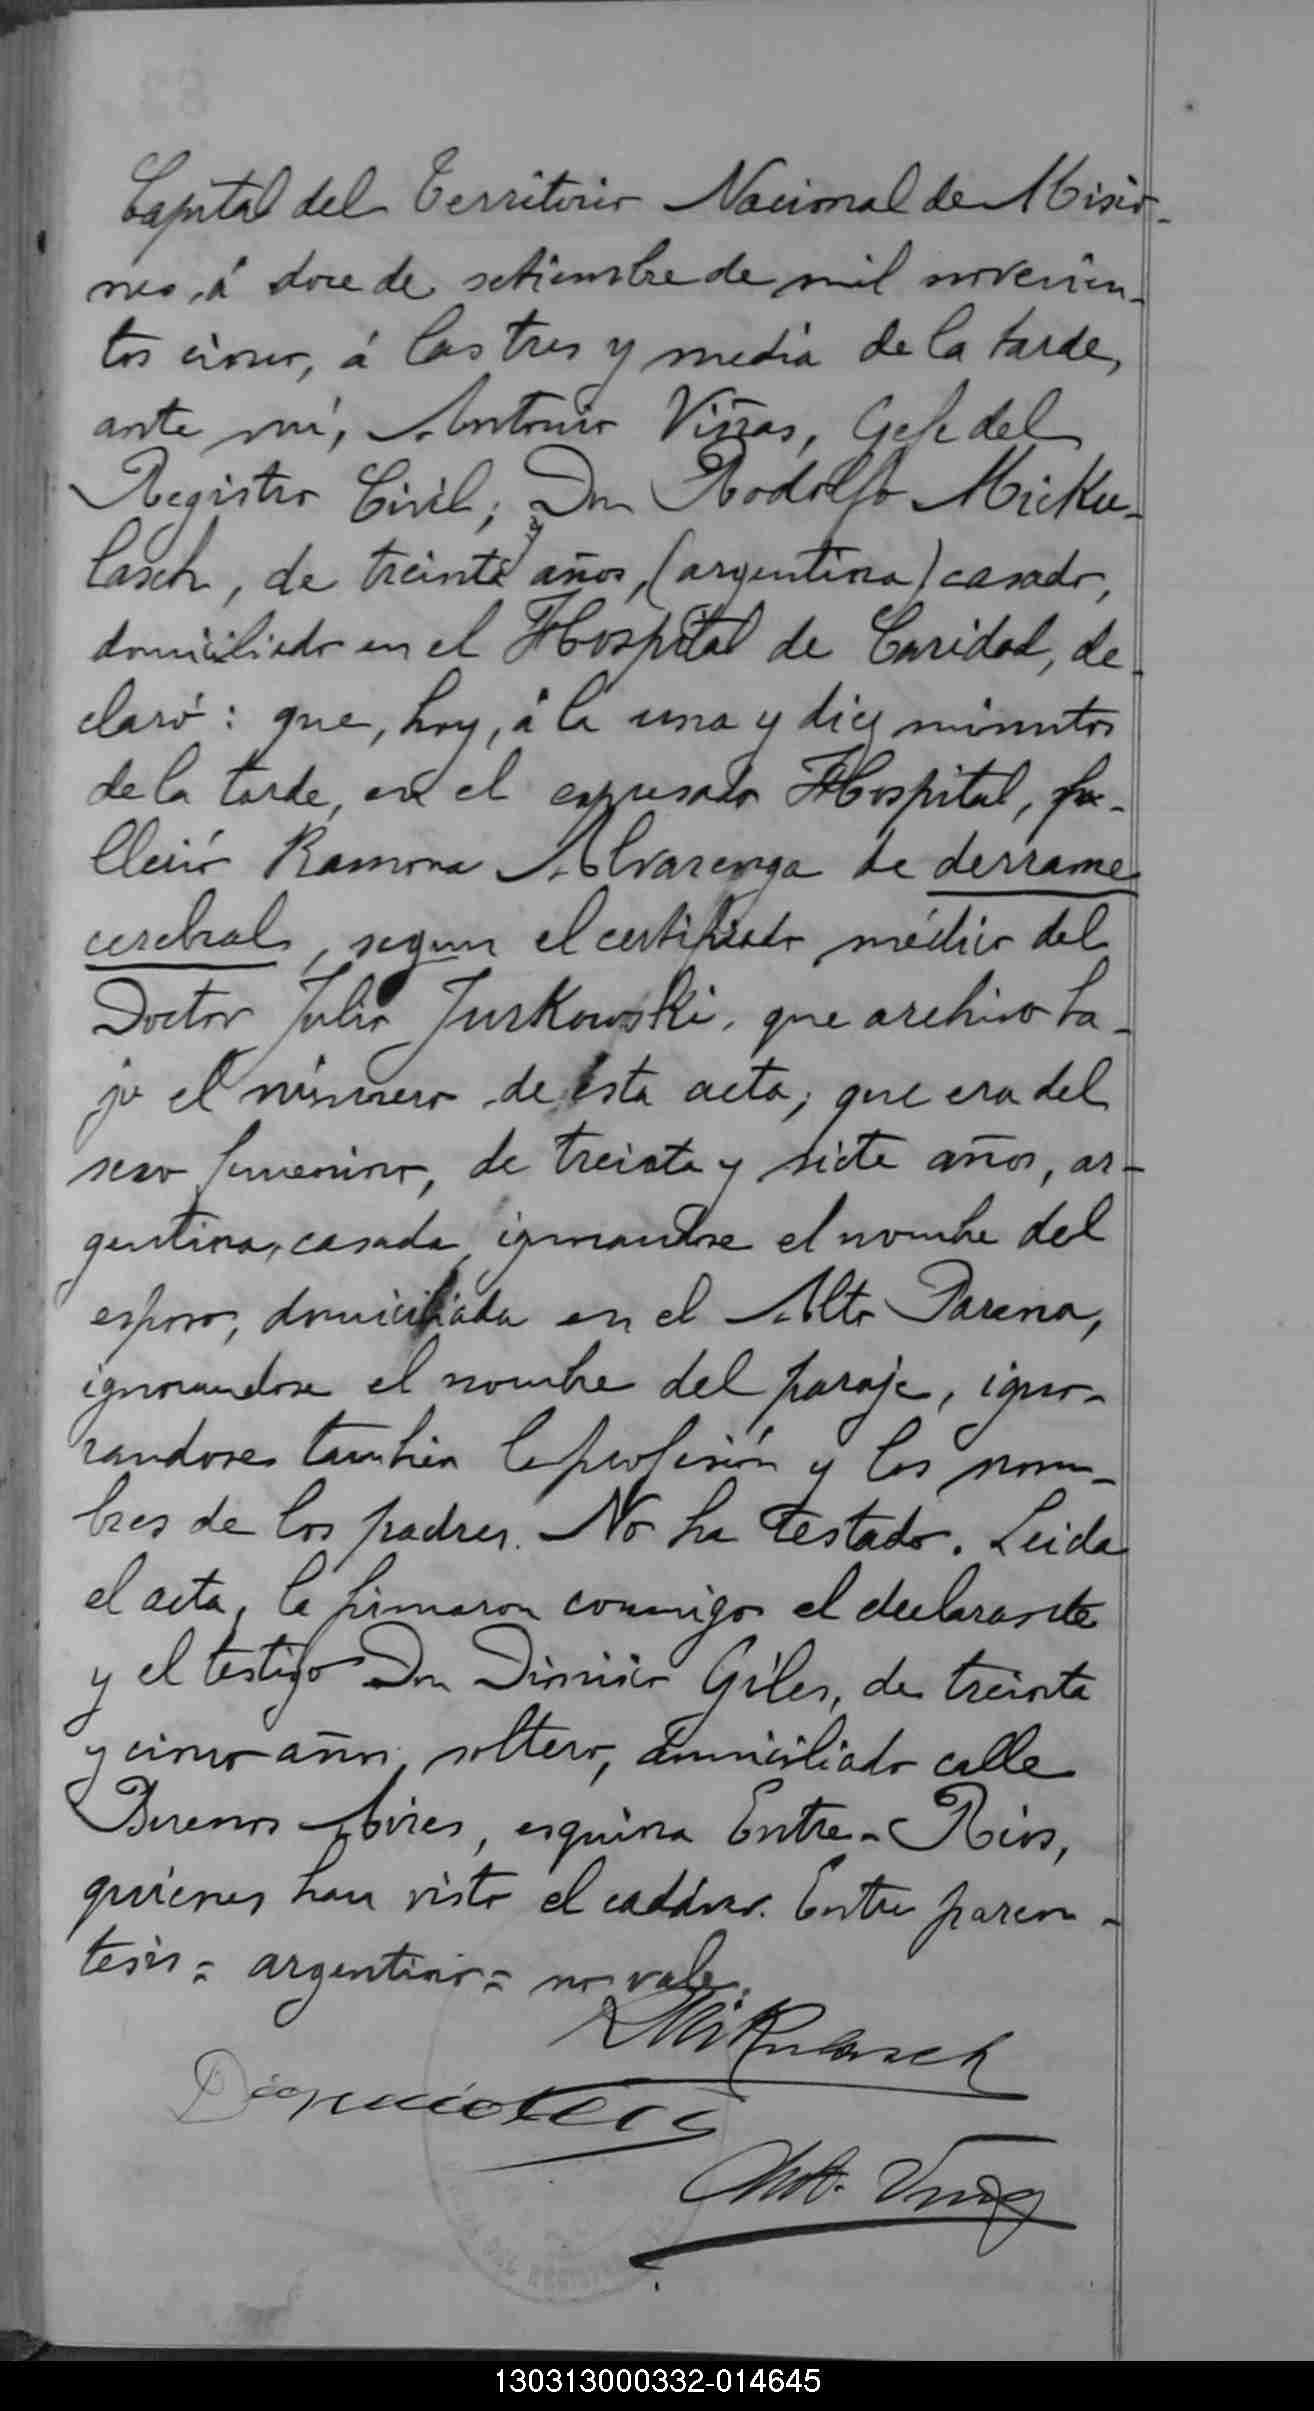 Capital del Territorio Nacional de Misio-
nes, á doce de setiembre de mil novecien-
tos cinco, á las tres y media de la tarde,
ante mí, Antonio Viñas, Gefe del
Registro Civil, Don Rodolfo Micku-
lasch, de treinta años, (argentina) casado,
domiciliado en el Hospital de Caridad, de-
claró: que, hoy, á la una y diez minutos
de la tarde, en el expresado Hospital, fa-
lleció Ramona Alvarenga de derrame
cerebral, segun el certificado médico del
Doctor Julio Jurkowski, que archivo ba-
jo el número de esta acta; que era del
sexo femenino, de treinta y siete años, ar-
gentina, casada, ignorandose el nombre del
esposo, domiciliada en el Alto Parana,
ignorandose el nombre del paraje, igno-
randose tambien la profesión y los nom-
bres de los padres. No ha testado. Leida
el acta, la firmaron conmigo el declarante
y el testigo Don Dionisio Giles, de treinta
y cinco años, soltero, domiciliado calle
Buenos Aires, esquina Entre-Rios,
quienes han visto el cadáver. Entre paren-
tesis = argentino = no vale.
R Mikulasch
Ant. Viñas
130313000332-014645